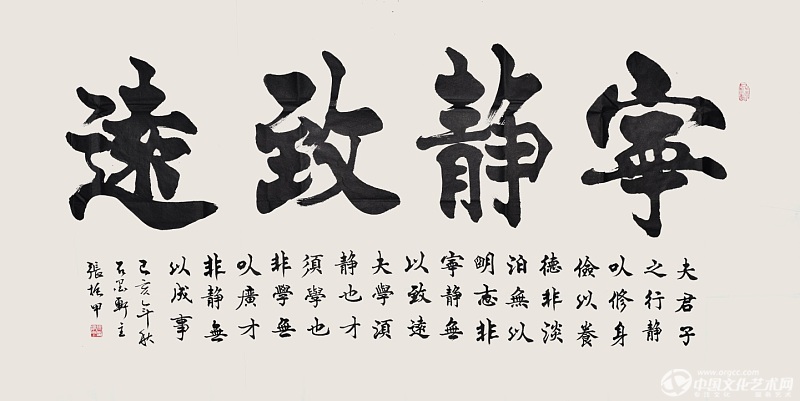 寧静致遠
夫君子
之行静
以修身
儉以養
德非淡
泊無以
明志非
寧静無
以致遠
夫學須
静也才
須學也
非學無
以廣才
非静無
以成事
己亥年秋
石墨軒主
張振甲
www.orgcc.com
中国文化艺术网